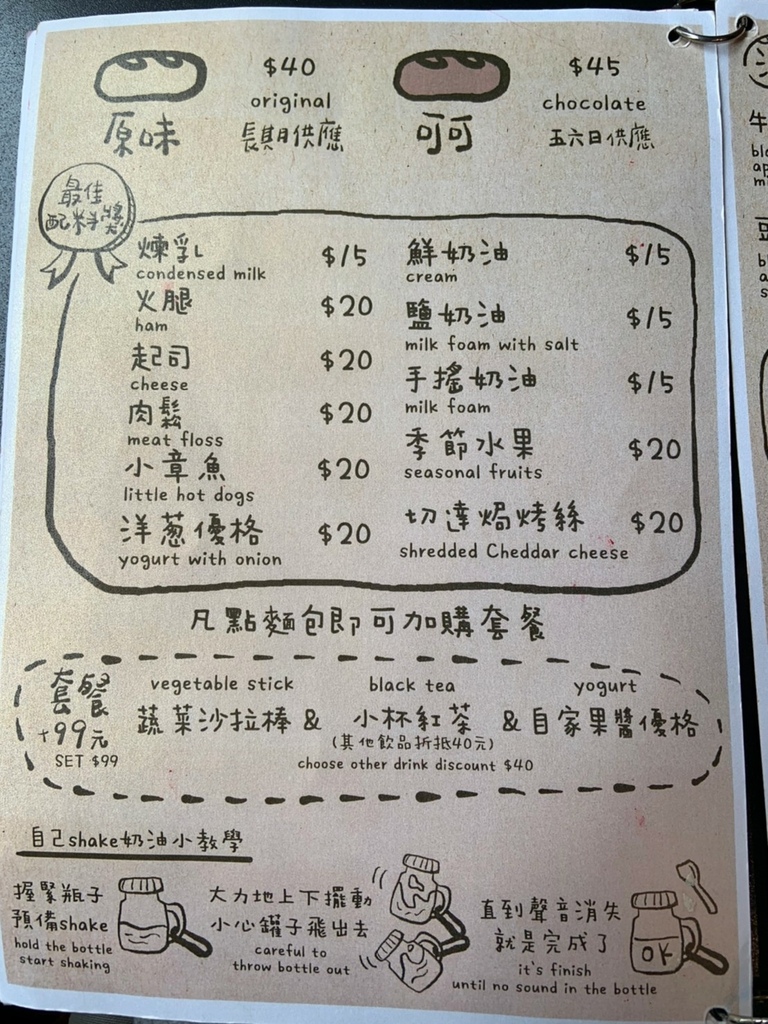 $40
original
原味
長期供應
$45
chocolate
可可
五六日供應
最佳
配料獎
煉乳 $15
condensed milk
火腿 $20
ham
起司 $20
cheese
肉鬆 $20
meat floss
小章魚 $20
little hot dogs
洋蔥優格 $20
yogurt with onion
鮮奶油 $15
cream
鹽奶油 $15
milk foam with salt
手搖奶油 $15
milk foam
季節水果 $20
seasonal fruits
切達焗烤絲 $20
shredded Cheddar cheese
凡點麵包即可加購套餐
套餐
+99元
SET $99
vegetable stick black tea yogurt
蔬菜沙拉棒 & 小杯紅茶 & 自家果醬優格
(其他飲品折抵40元)
choose other drink discount $40
自己shake奶油小教學
握緊瓶子
預備shake
hold the bottle
start shaking
大力地上下擺動
小心罐子飛出去
careful to
throw bottle out
直到聲音消失
就是完成了
it's finish
until no sound in the bottle
OK
牛